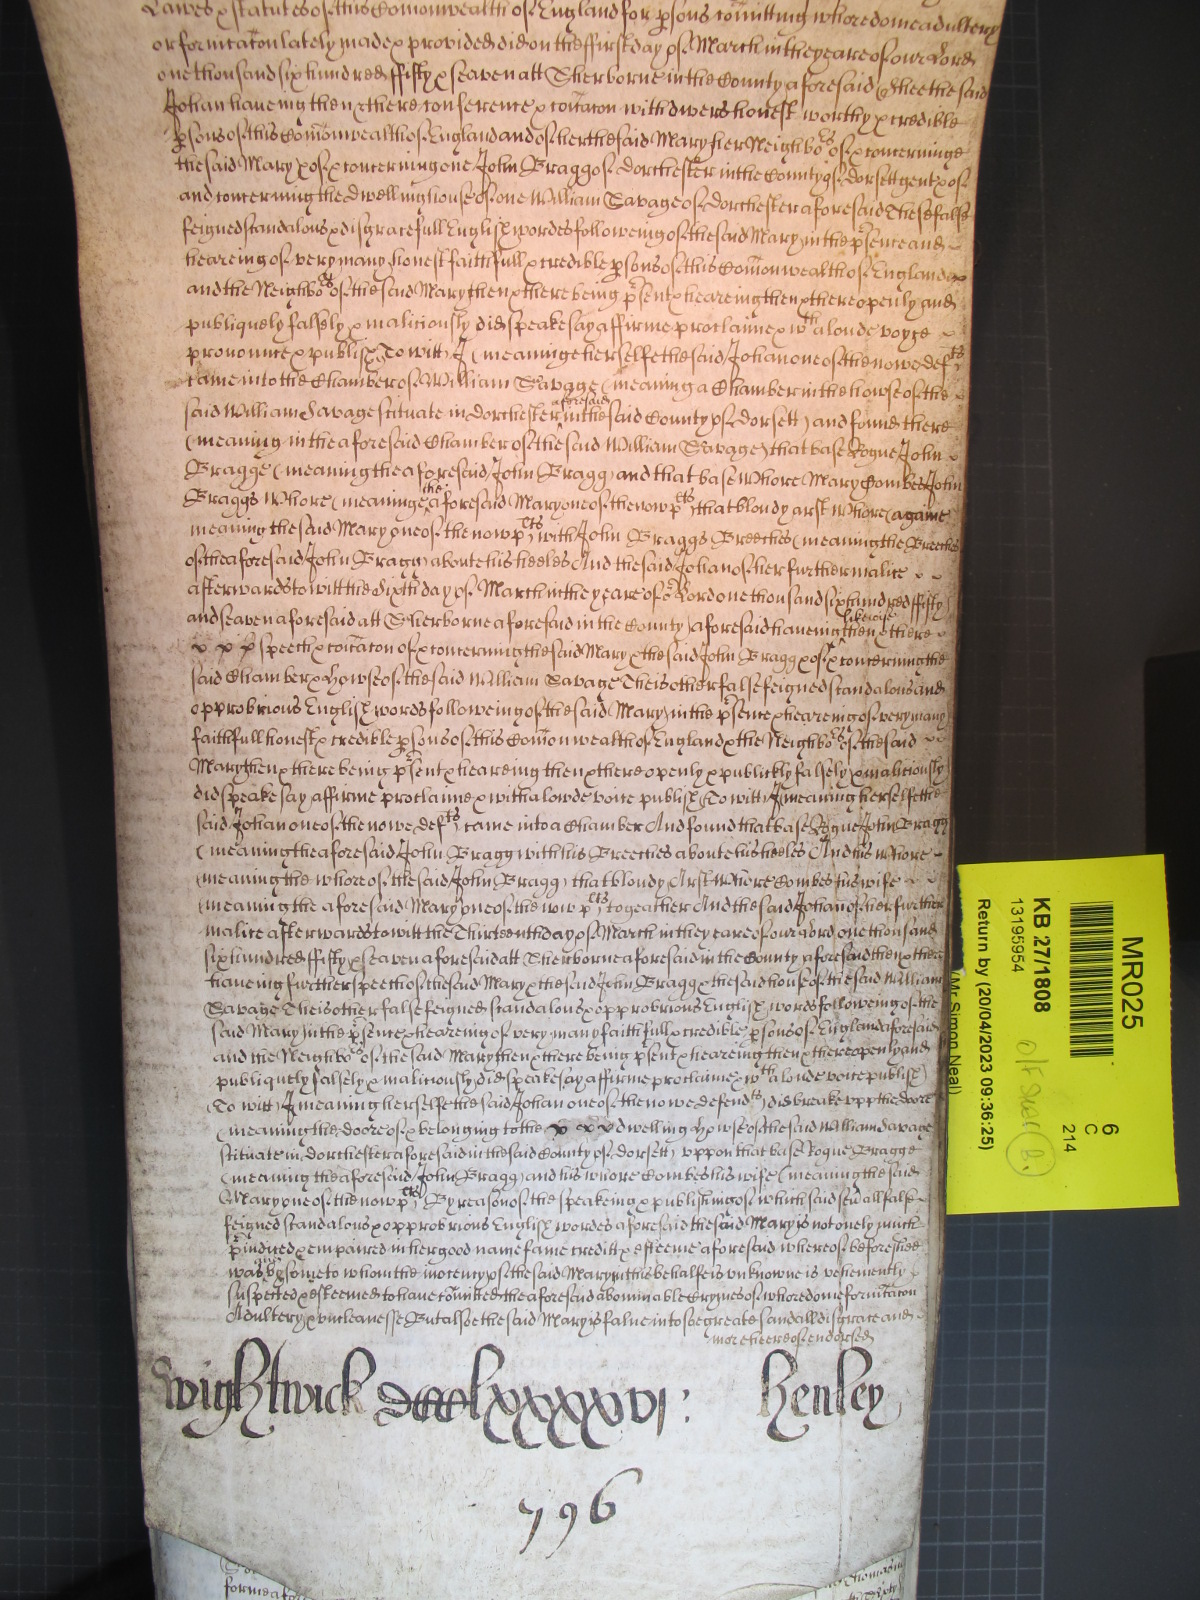 Lawes & statutes of this Com̄onwealth of England for p̱sons com̄itting whoredome adultery
or fornicac̄on lately made & provided did on the ffirst day of March in the yeare of our Lord
one thousand six hundred ffifty & seaven att Sherborne in the County aforesaid Shee the said
Johan haueing then & there conference & com̄icac̄on with divers honest worthy & credible
p̱sons of this Com̄onwealth of England and of her the said Mary her Neighbo^rs of & concerninge
the said Mary & of & concerning one John Bragg of Dorchester in the County of Dorsett gent & of
and concerning the dwelling house of one William Savage of Dorchester aforesaid These false
feigned scandalous & disgracefull English wordes followeing of the said Mary in the p̱sence and
heareing of very many honest faithfull & credible p̱sons of this Com̄onwealth of England &
and the Neighbo^rs of the said Mary then & there being p̱sent & heareing then & there openly and
publiquely falsly & maliciously did speake say affirme proclaime & w^th a loude voyce
pronounce & publish To witt I (meaninge herselfe the said Johan one of the nowe def^ts)
came into the Chamber of William Savage (meaning a Chamber in the howse of the
said William Savage scituate in Dorchester aforesaid in the said County of Dorsett) and found there
(meaning in the aforesaid Chamber of the said William Savage) that base Rogue John
Bragge (meaning the aforesaid John Bragg) and that base Whore Mary Combes John
Braggs Whore (meaninge the aforesaid Mary one of the now p^lts) that bloudy arst Whore (againe
meaning the said Mary one of the now p^lts) with John Braggs Breeches (meaning the Breeches
of the aforesaid John Bragg) about his heeles And the said Johan of her further malice
afterwards to witt the Sixth day of March in the yeare of o^r Lord one thousand six hundred ffifty
and seaven aforesaid att Sherborne aforesaid in the County aforesaid haueing likewise then & there
speech & com̄icac̄on of & concerning the said Mary & the said John Bragg & of & concerning the
said Chamber & howse of the said William Savage Theis other false feigned scandalous and
opprobrious English words followeing of the said Mary in the p̱sence & heareing of very many
faithfull honest & credible p̱sons of this Com̄onwealth of England & the Neighbo^rs of the said
Mary then & there being p̱sent & heareing then & there openly & publickly falsely & maliciously
did speake say affirme proclaime & with a lowde voice publish To witt I (meaning herselfe the
said Johan one of the nowe def^ts) came into a Chamber And found that base Rogue John Bragg
(meaning the aforesaid John Bragg) with his Breeches aboute his heeles And his Whore
(meaning the whore of the said John Bragg) that bloudy Arst Whore Combes his wife
(meaning the aforesaid Mary one of the now p^lts) togeather And the said Johan of her further
malice afterwards to witt the Thirteenth day of March in the yeare of our Lord one thousand
six hundred ffifty & seaven aforesaid att Sherborne aforesaid in the County aforesaid then & there
haueing further speech of the said Mary & the said John Bragg & the said house of the said William
Savage Theis other false feigned scandalous & opprobrious English words followeing of the
said Mary in the p̱sence & heareing of very many faithfull & credible p̱sons of England aforesaid
and the Neighbo^rs of the said Mary then & there being p̱sent & heareing then & there openly and
publiquely falsely & maliciously did speake say affirme proclaime & w^th a loude voice publish
To witt I (meaning herselfe the said Johan one of the nowe defend^ts) did breake vpp the doore
(meaning the doore of & belonging to the dwelling howse of the said William Savage
scituate in Dorchester aforesaid in the said County of Dorsett) vppon that base Rogue Bragge
(meaning the aforesaid John Bragg) and his whore Combes his wife (meaning the said
Mary one of the now p^lts) By reason of the speakeing & publishing of which said sev̄all false
feigned scandalous & opprobrious English wordes aforesaid the said Mary is not onely much
p̱iudiced & empaired in her good name fame creditt & esteeme aforesaid whereof before shee
was and by some to whom the inocency of the said Mary in this behalfe is vnknowne is vehemently
suspected & esteemed to haue com̄itted the aforesaid abominable Crymes of whoredome fornicac̄on
Adultery & vncleanesse But alsoe the said Mary is falne into soe greate scandall disgrace and
more hereof endorsed
Wightwick DCCClxxxxvj: Henley
796
MR025
6
C
214
KB 27/1808
13195954
O/F Shelf (B.)
Return by (20/04/2023 09:36:25)
(Mr Simon Neal)